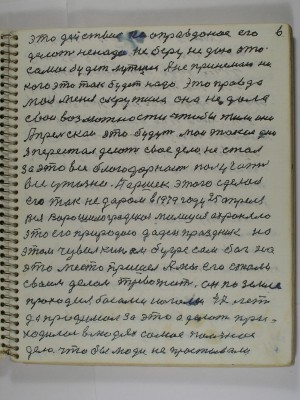 6
это действие не оправданое его
делать ненада не веру не дию это
самое будет мутция Я не принемаю на
кого это так будет надо. Это правда
моя меня скрутила она не дала
свои возможности чтобы жили они
Апрельские это будут мои тяжелые дни
я перестал делать свое дело не стал
за это все благодарность получать
все утеряно. Паршек этого сделал
его так не даром в 1979 году 25 апреля
вся Ворошиловградская милиция окружила
это его природою даден праздник на
этом Чувилкином бугре сам бог на
это место пришел А мы его стали
своим делом тревожить. он по земле
проходил босыми ногами 42 лет
да продумал за это а делать при-
ходилося в людях самое полезное
дело. что бы люди не простывали